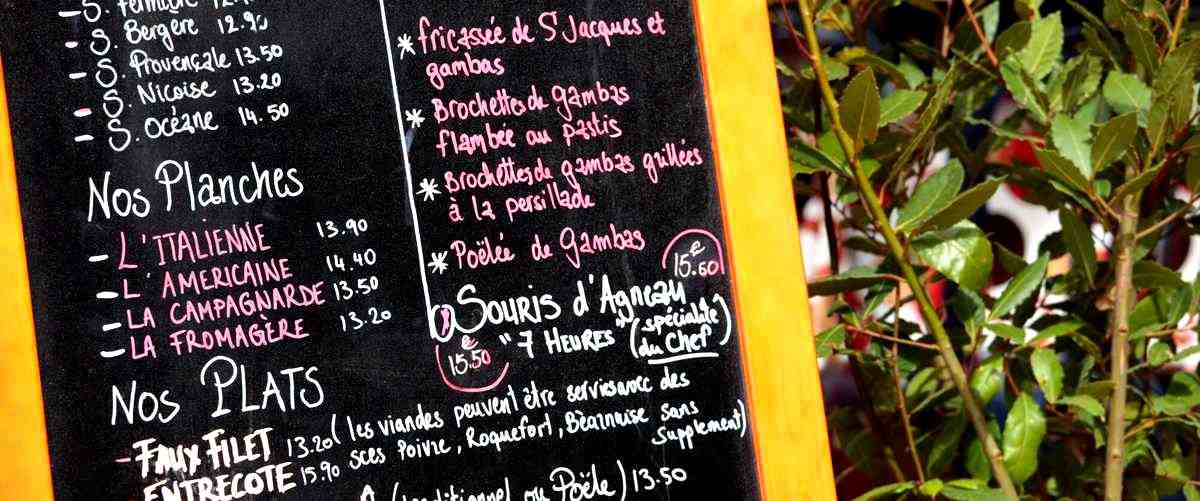 S. Fermière
S. Bergère 12.90
S. Provençale 13.50
S. Niçoise 13.20
S. Océane 14.50
Nos Planches
L'ITALIENNE 13.90
L'AMERICAINE 14.40
LA CAMPAGNARDE 13.50
LA FROMAGÈRE 13.20
Nos PLATS
FAUX FILET 13.20 (les viandes peuvent être servies avec des
ENTRECOTE 15.90 sces Poivre, Roquefort, Béarnaise sans
supplement)
* fricassée de S Jacques et
gambas
* Brochettes de gambas
flambée au pastis
* Brochettes de gambas grillées
à la persillade
* Poëlée de Gambas
15.60 €
Souris d'Agneau
"7 HEURES" (spécialité
du Chef)
15.50 €
(traditionnel ou Poêle) 13.50